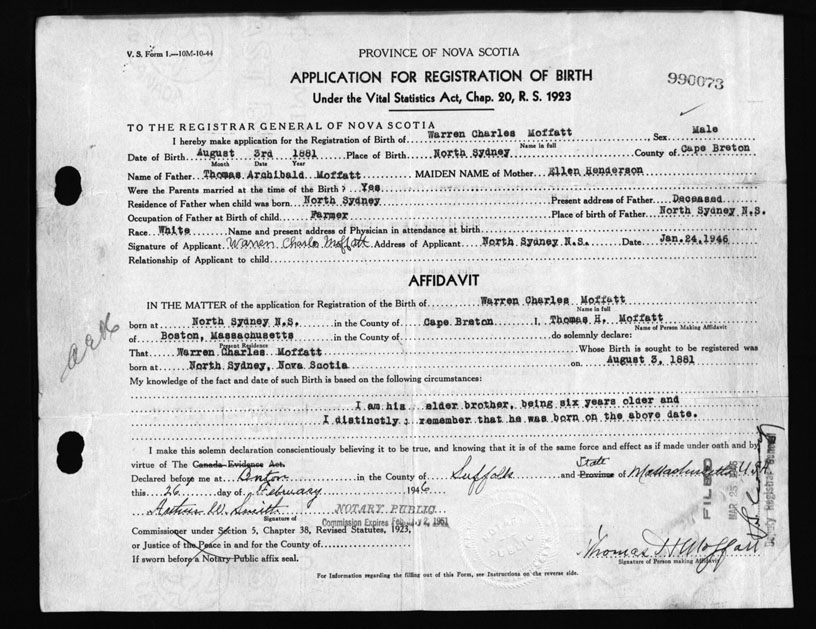 V. S. Form 1.—10M-10-44
PROVINCE OF NOVA SCOTIA
APPLICATION FOR REGISTRATION OF BIRTH
Under the Vital Statistics Act, Chap. 20, R. S. 1923
990073
TO THE REGISTRAR GENERAL OF NOVA SCOTIA
I hereby make application for the Registration of Birth of Warren Charles Moffatt, Sex Male
Name in full
Date of Birth August 3rd 1881 Place of Birth North Sydney County of Cape Breton
Month Date Year
Name of Father Thomas Archibald Moffatt MAIDEN NAME of Mother Ellen Henderson
Were the Parents married at the time of the Birth? Yes
Residence of Father when child was born North Sydney Present address of Father Deceased
Occupation of Father at Birth of child Farmer Place of birth of Father North Sydney N.S.
Race White Name and present address of Physician in attendance at birth
Signature of Applicant Warren Charles Moffatt Address of Applicant North Sydney N.S. Date Jan.24,1946
Relationship of Applicant to child
AFFIDAVIT
IN THE MATTER of the application for Registration of the Birth of Warren Charles Moffatt
Name in full
born at North Sydney N.S. in the County of Cape Breton I, Thomas H. Moffatt
Name of Person Making Affidavit
of Boston, Massachusetts in the County of do solemnly declare:
Present Residence
That Warren Charles Moffatt Whose Birth is sought to be registered was
born at North Sydney, Nova Scotia on August 3, 1881
My knowledge of the fact and date of such Birth is based on the following circumstances:
I am his elder brother, being six years older and
I distinctly ; remember that he was born on the above date.
I make this solemn declaration conscientiously believing it to be true, and knowing that it is of the same force and effect as if made under oath and by
virtue of The Canada Evidence Act.
State
Declared before me at Boston in the County of Suffolk and Province of Massachusetts USA
this 26 day of February 1946
Smith NOTARY PUBLIC
Signature of
Commission Expires
Commissioner under Section 5, Chapter 38, Revised Statutes, 1923,
or Justice of the Peace in and for the County of
If sworn before a Notary Public affix seal.
Thomas H Moffatt
Signature of Person making Affidavit
For Information regarding the filling out of this Form, see Instructions on the reverse side.
FILED